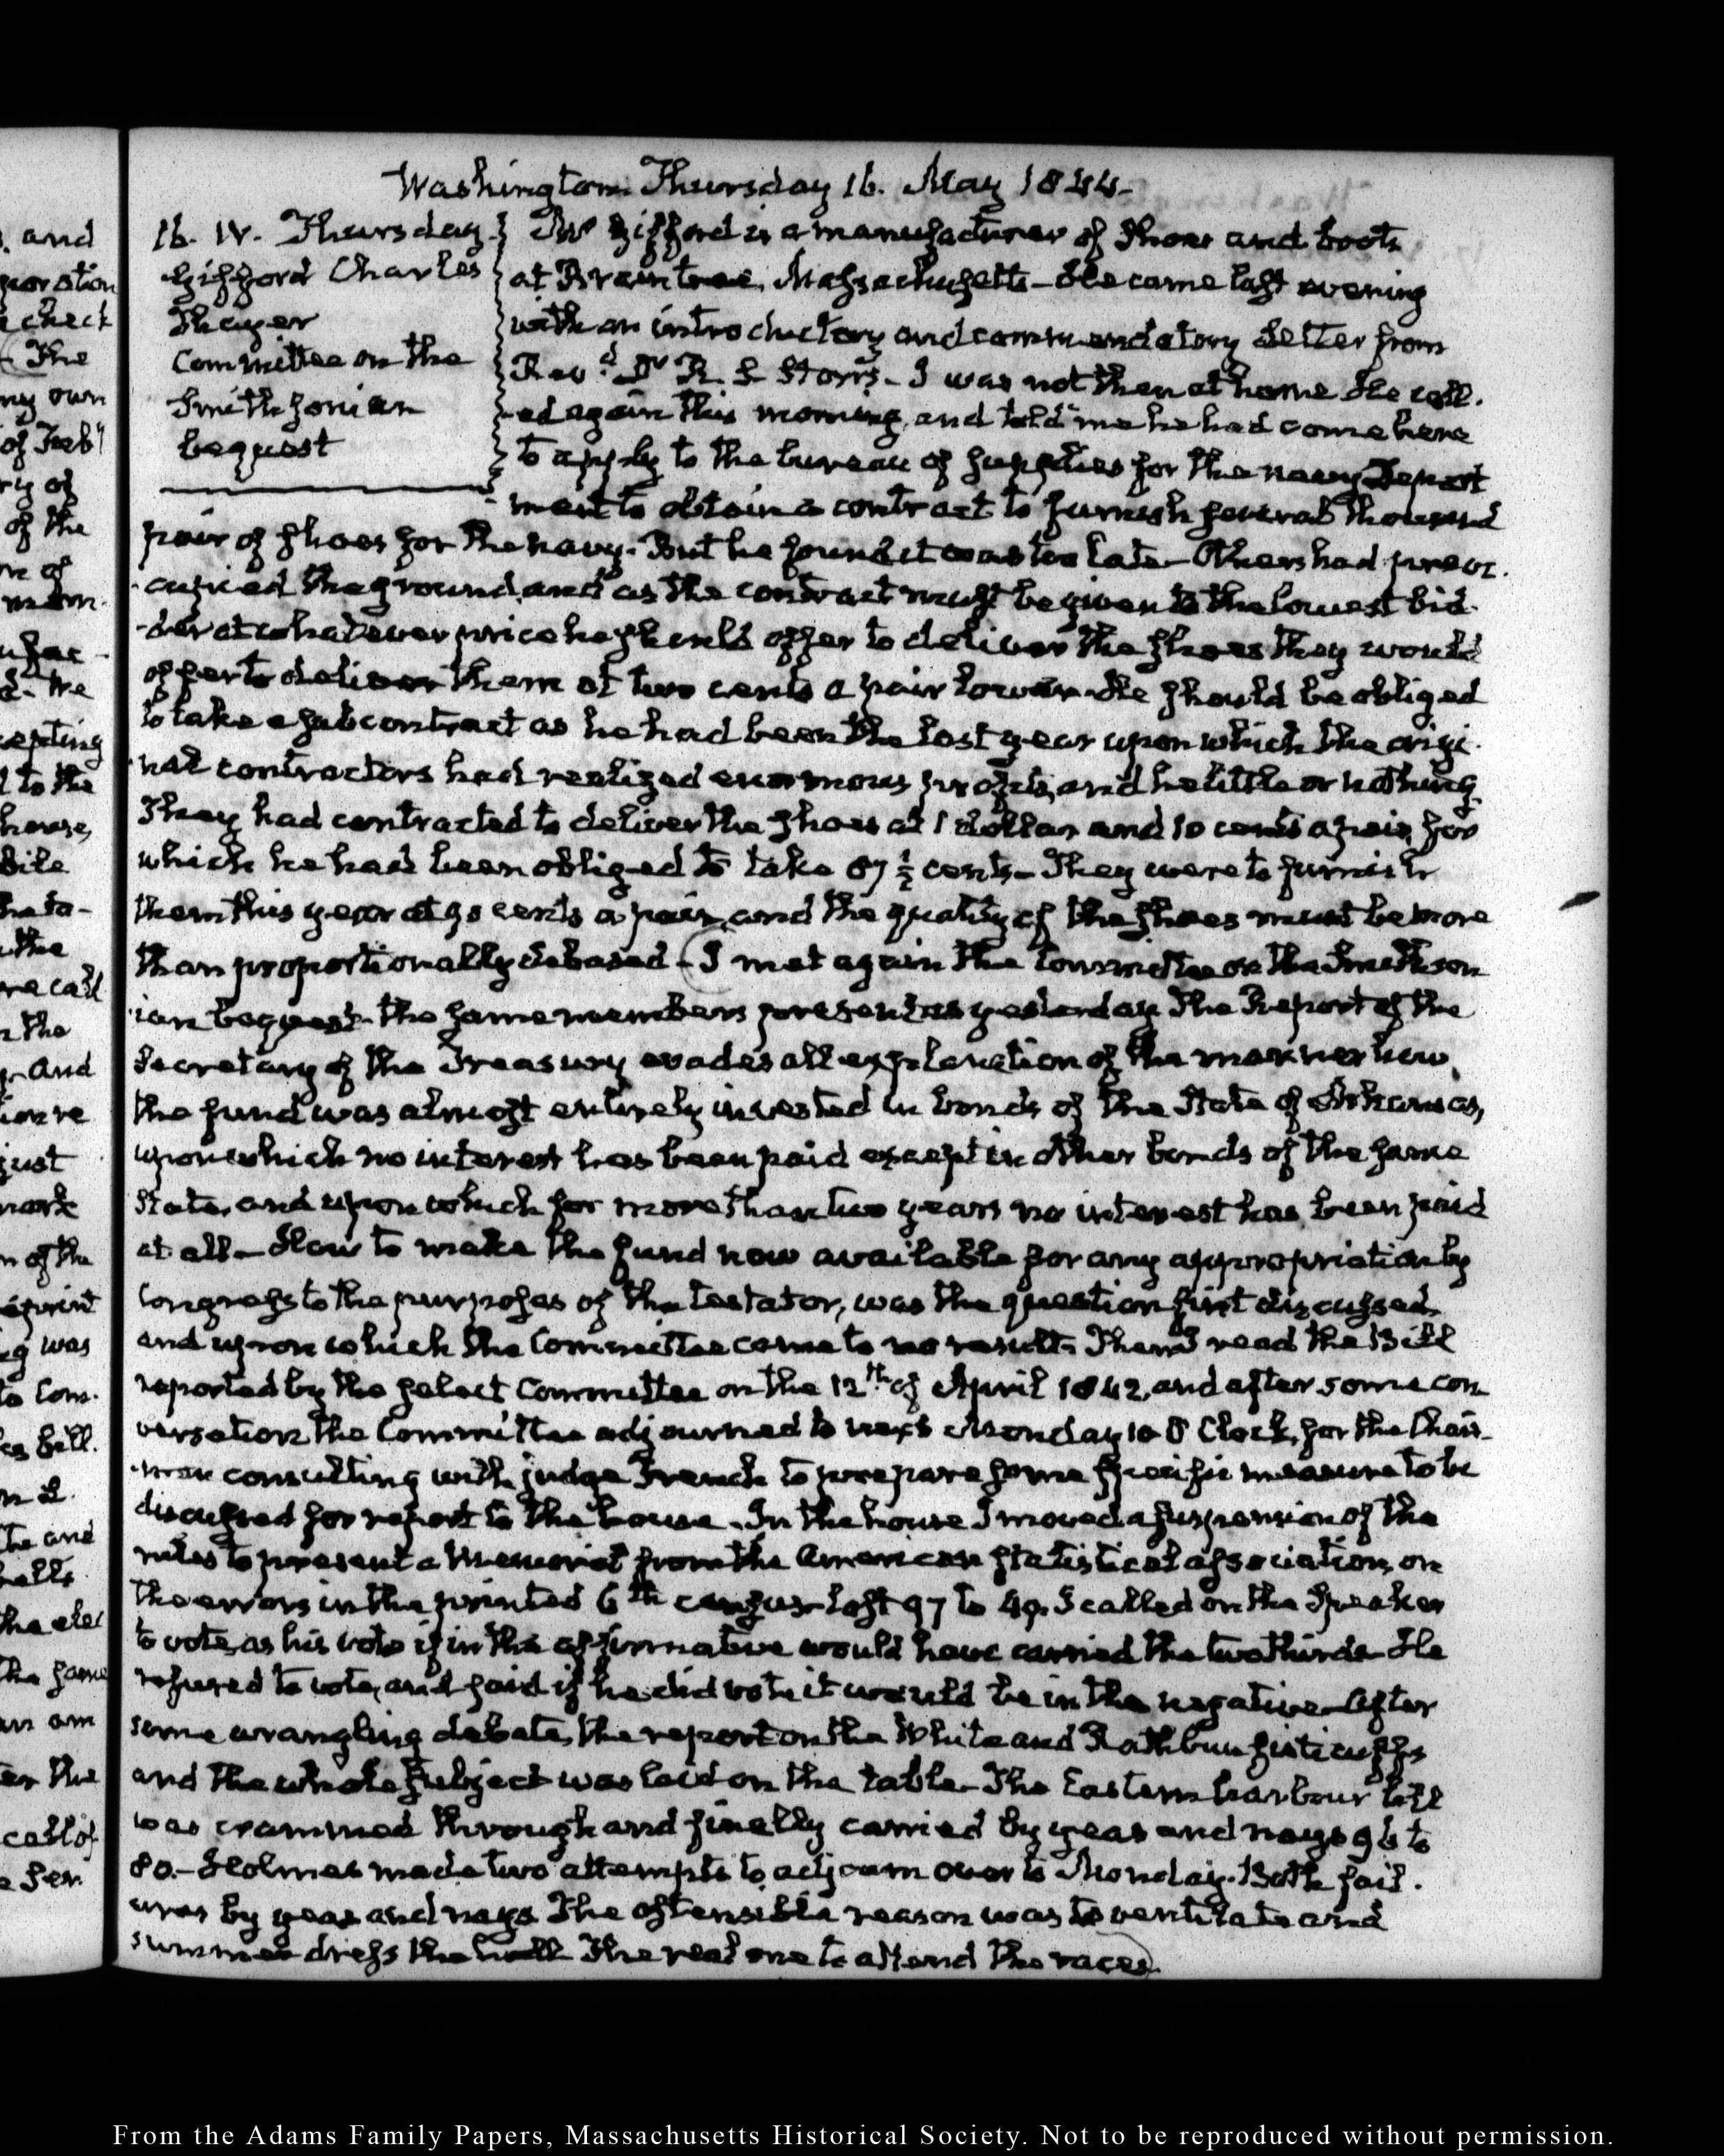 Washington Thursday 16. May 1844.
16. IV. Thursday
Gifford Charles
Thayer
Committee on the
Smithsonian
bequest
Mr Gifford is a manufacturer of Shoes and boots
at Braintree, Massachusetts — He came last evening
with an introductory and commendatory Letter from
Revd. Dr R. S. Storrs — I was not then at home. He call-
-ed again this morning, and told me he had come here
to apply to the bureau of supplies for the navy Depart
ment to obtain a contract to furnish several thousand
pair of shoes for the navy. But he found it was too late — Others had preoc-
-cupied the ground, and as the contract must be given to the lowest bid-
-der at whatever price he should offer to deliver the shoes they would
offer to deliver them at two cents a pair lower. He should be obliged
to take a subcontract as he had been the last year upon which the origi-
-nal contractors had realized enormous profits, and he little or nothing.
They had contracted to deliver the shoes at 1 dollar and 10 cents a pair, for
which he had been obliged to take 87 ½ cents — They were to furnish
them this year at 90 cents a pair, and the quality of the shoes must be more
than proportionally debased — I met again the Committee on the Smithson
-ian bequest. the same members present as yesterday. The Report of the
Secretary of the Treasury evades all explanation of the manner how
the fund was almost entirely invested in bonds of the State of Arkansas,
upon which no interest has been paid except in other bonds of the same
State, and upon which for more than two years no interest has been paid
at all — How to make the fund now available for any appropriation by
Congress to the purposes of the testator, was the question first discussed,
and upon which the Committee came to no result. Then I read the Bill
reported by the select Committee on the 12th of April 1842, and after some con
versation the Committee adjourned to next Monday 10 O'Clock, for the Chair-
-man consulting with judge French to prepare some specific measure to be
discussed for report to the house. In the house I moved a suspension of the
rules to present a Memorial from the American statistical association, on
the errors in the printed 6th census — lost 97 to 49. I called on the Speaker
to vote, as his vote if in the affirmative would have carried the two thirds — He
refused to vote, and said if he did vote it would be in the negative — After
some wrangling debate, the report on the White and Rathbun fisticuffs
and the whole subject was laid on the table — The Eastern harbour bill
was crammed through and finally carried by yeas and nays 96 to
80. — Holmes made two attempts to adjourn over to Monday. Both fail-
ures by yeas and nays. The ostensible reason was to ventilate and
summer dress the hall. The real one to attend the races.
and
check
The
my own
of the
to the
house,
the
the
and
just
of the
was
to Com-
bill.
and
the same
the
From the Adams Family Papers, Massachusetts Historical Society. Not to be reproduced without permission.